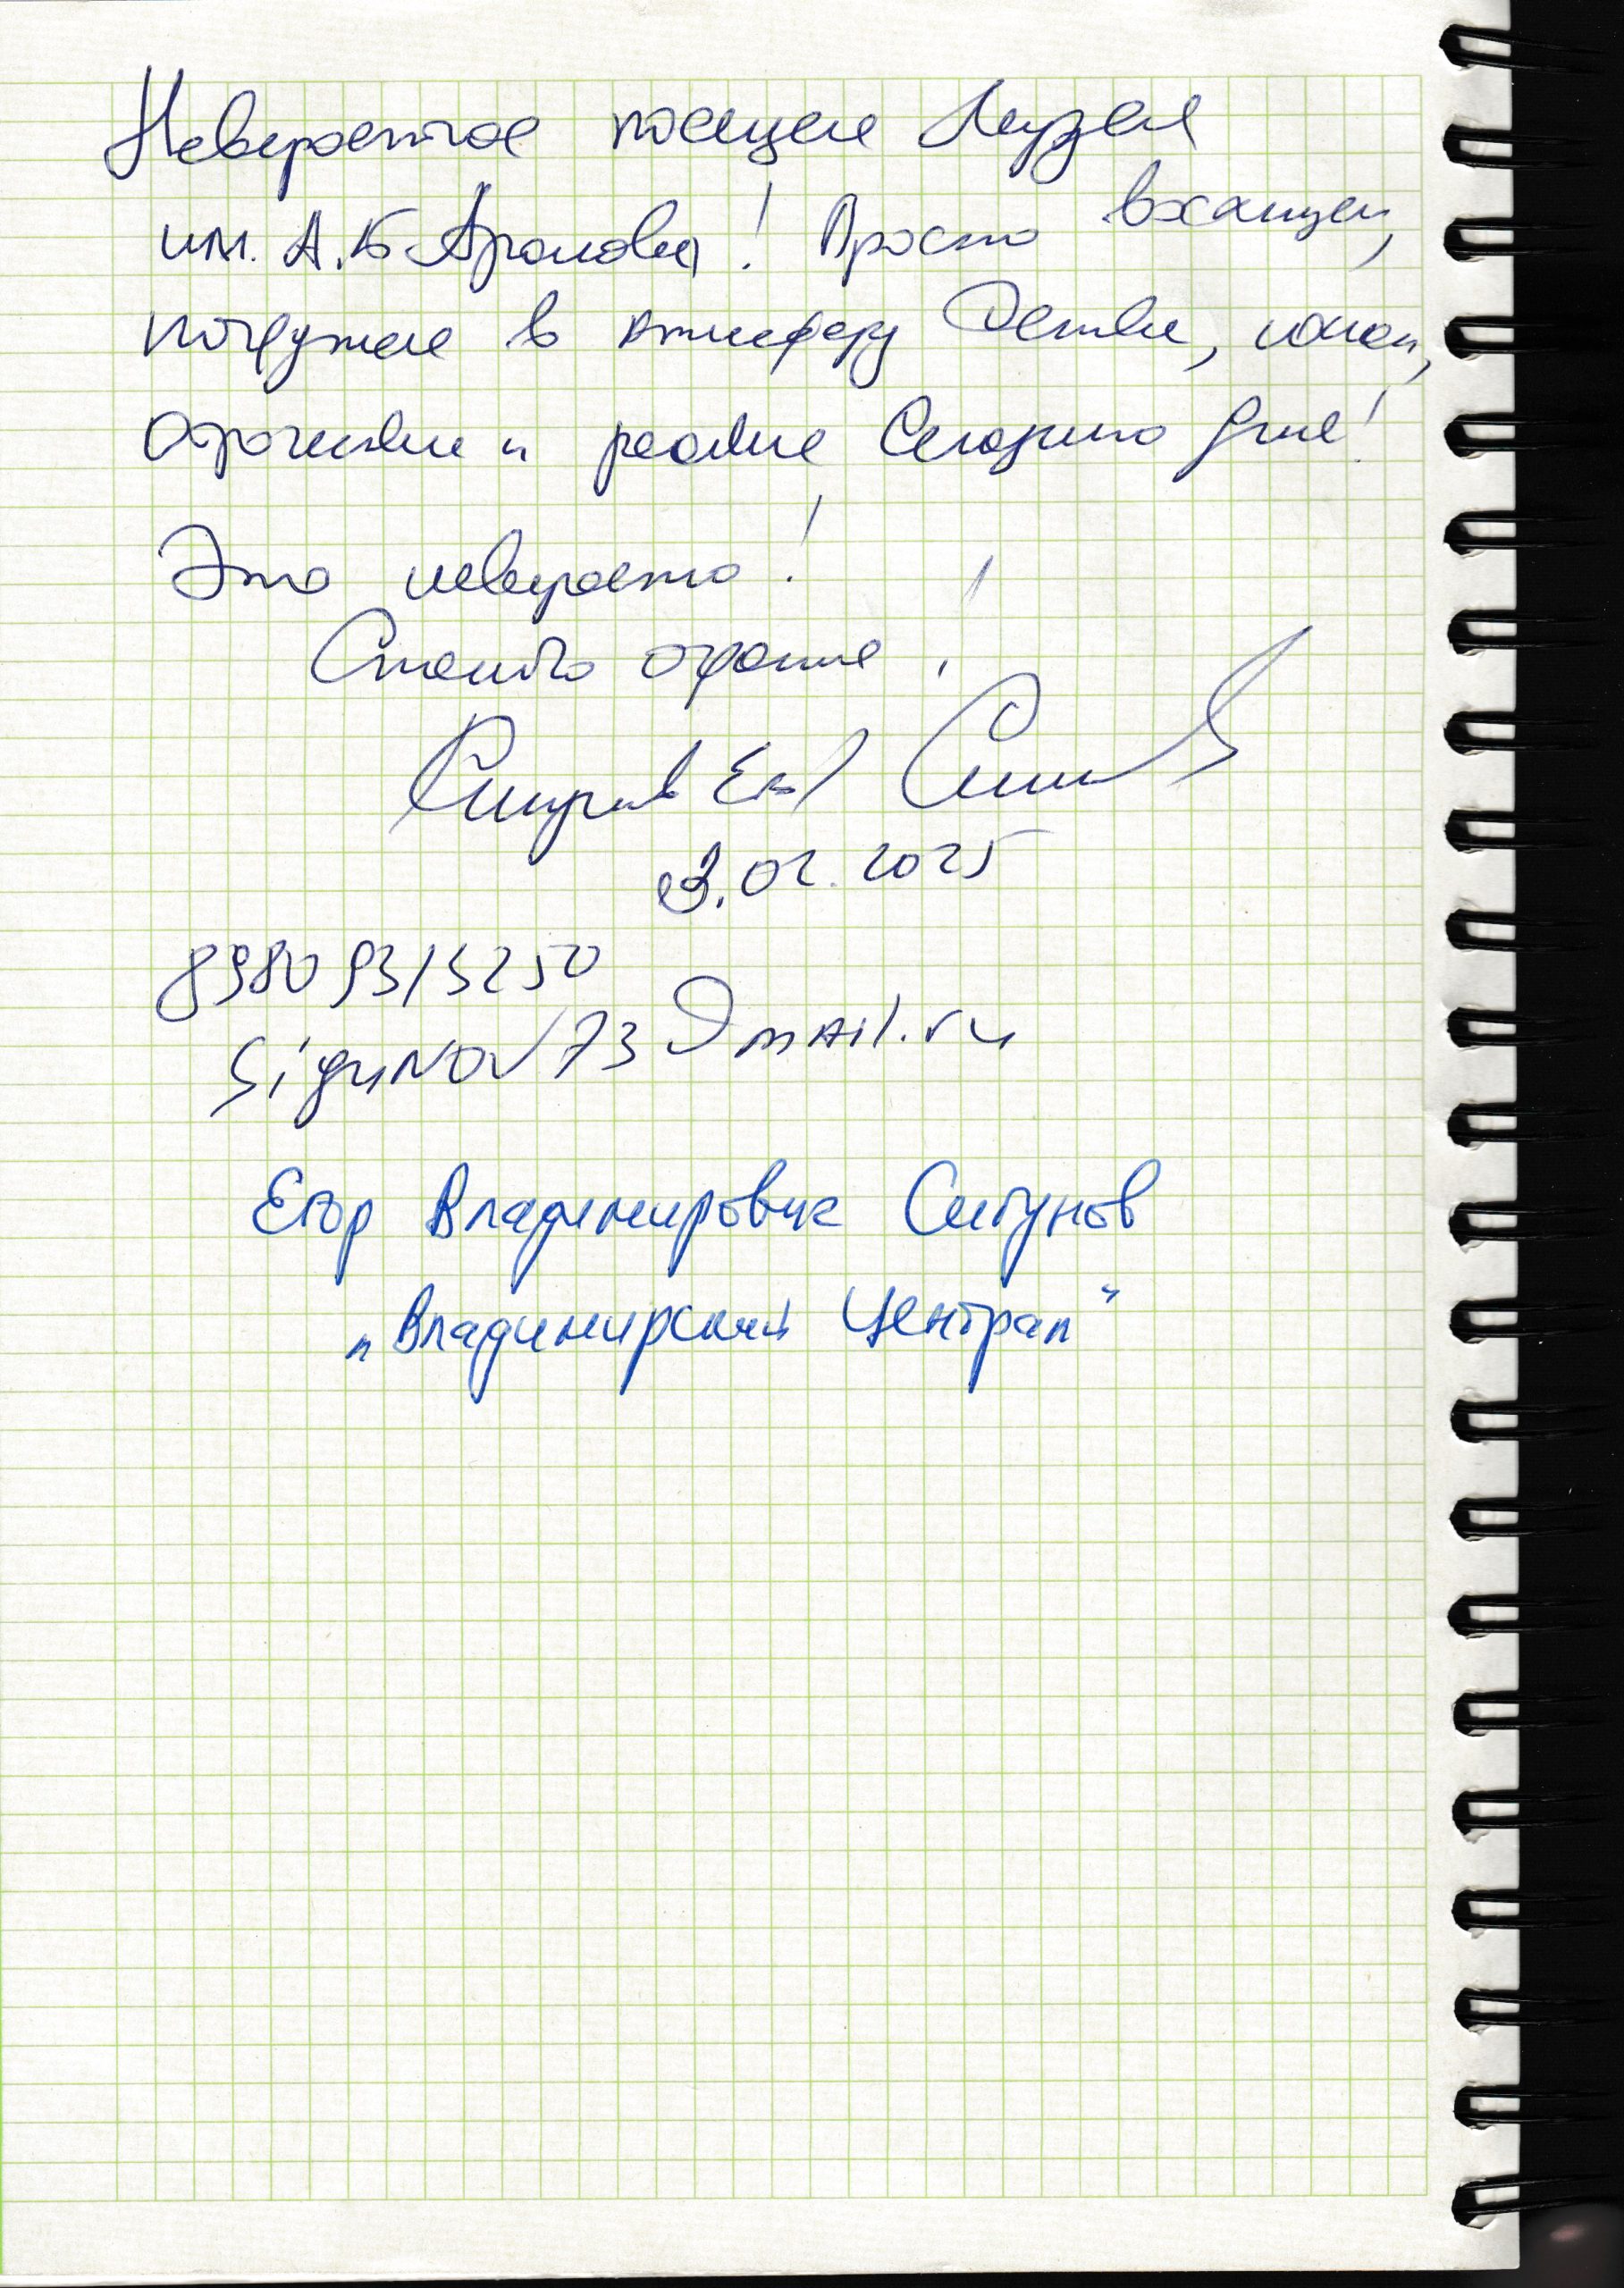 Невероятное посещение Музея
им. А.Б. Аронова! Просто восхищен,
погружение в атмосферу Детства, юности,
Отрочества и реалия Сегодняшнего дня!
Это невероятно!
Спасибо огромное!
Сигунов Е.В.
3.02.2025
89809313250
Sigunov73@mail.ru
Егор Владимирович Сигунов
„Владимирский Централ"